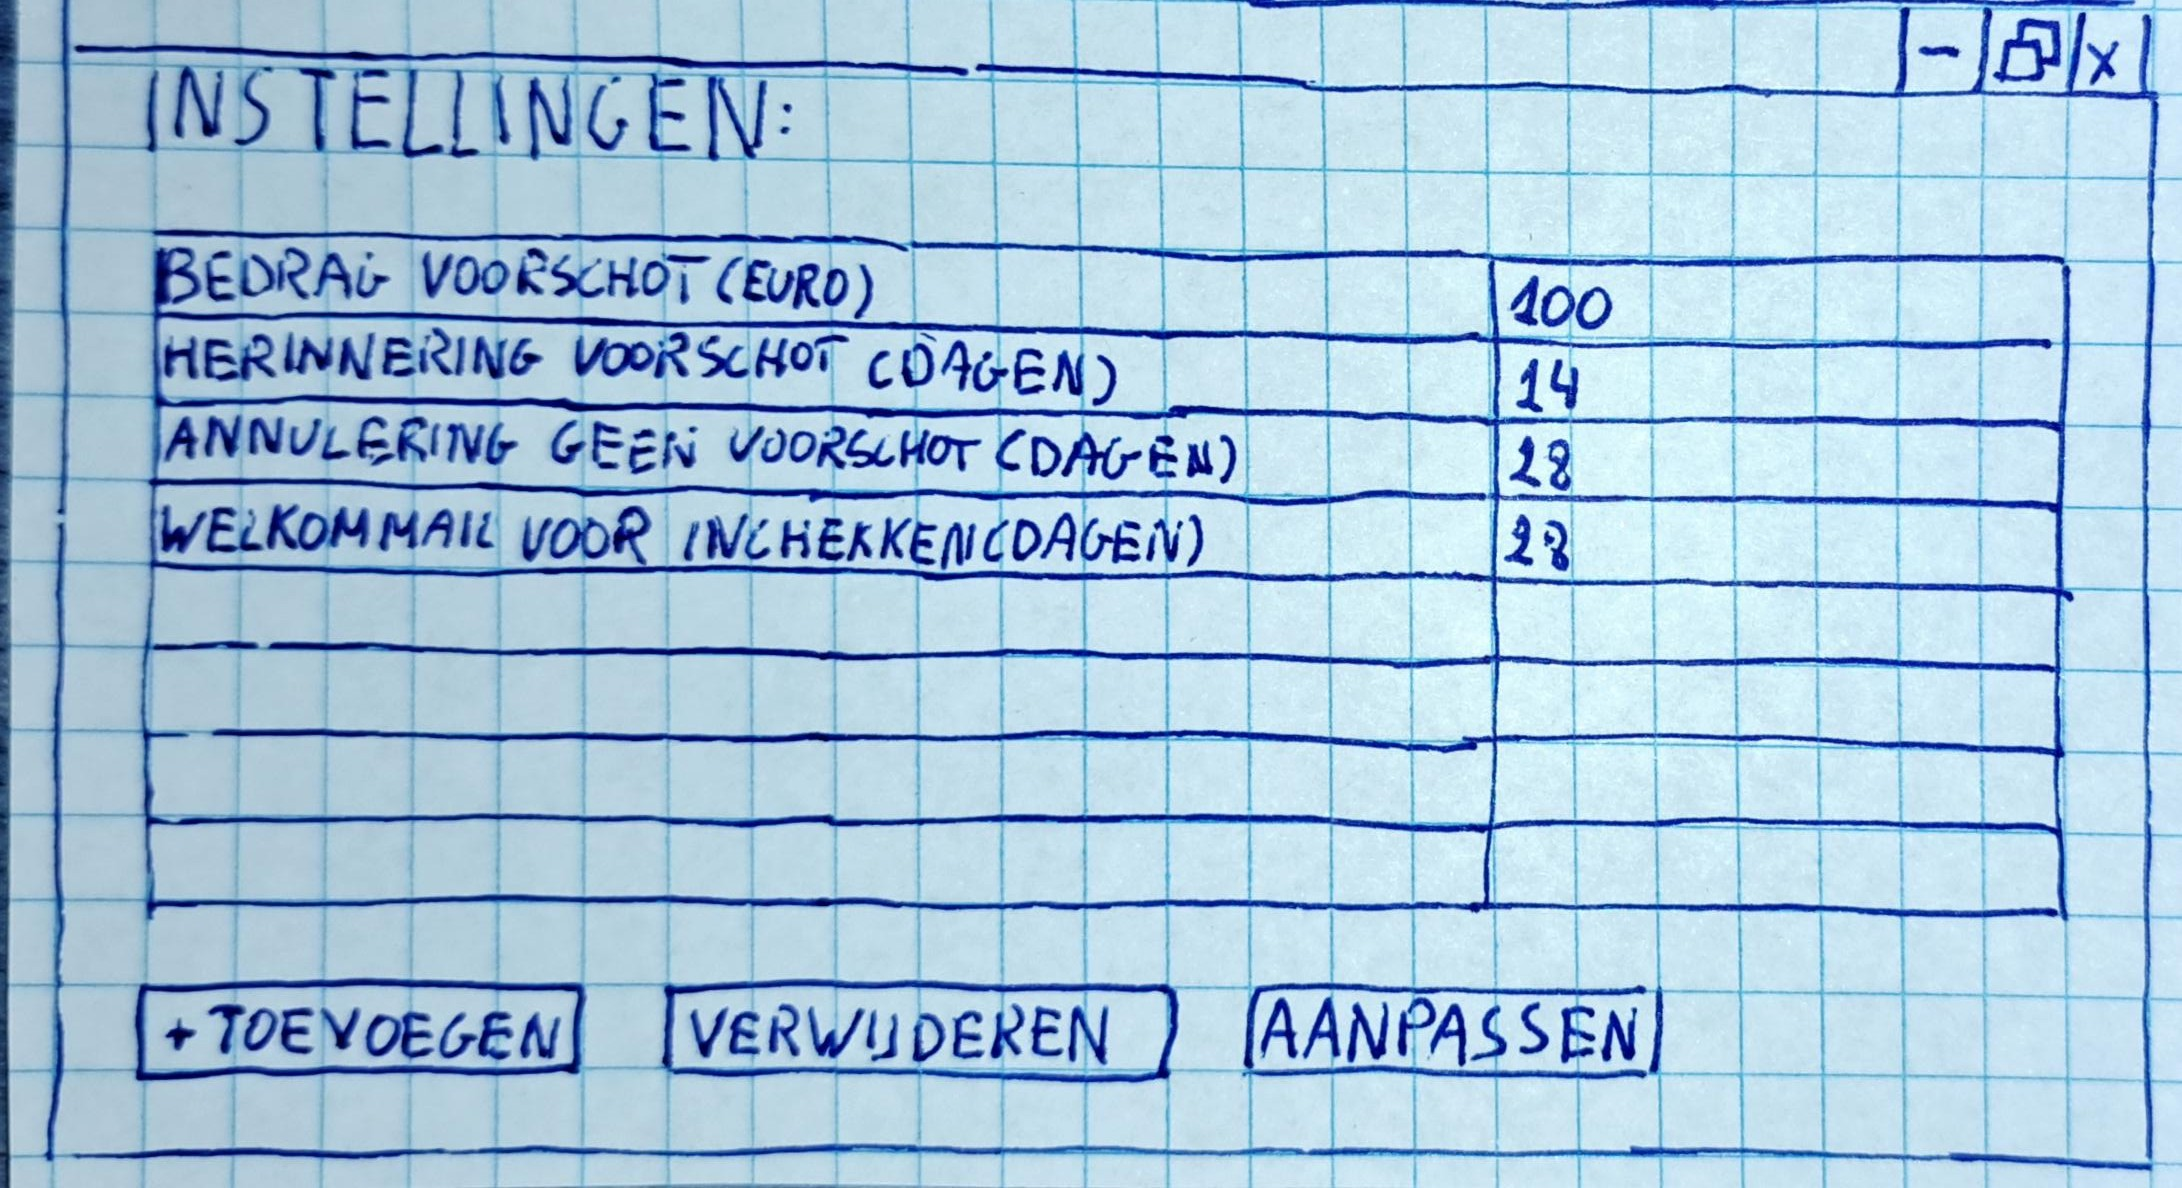 - X
INSTELLINGEN:
BEDRAG VOORSCHOT (EURO) 100
HERINNERING VOORSCHOT (DAGEN) 14
ANNULERING GEEN VOORSCHOT (DAGEN) 28
WELKOMMAIL VOOR INCHEKKEN (DAGEN) 28
+ TOEVOEGEN VERWIJDEREN AANPASSEN